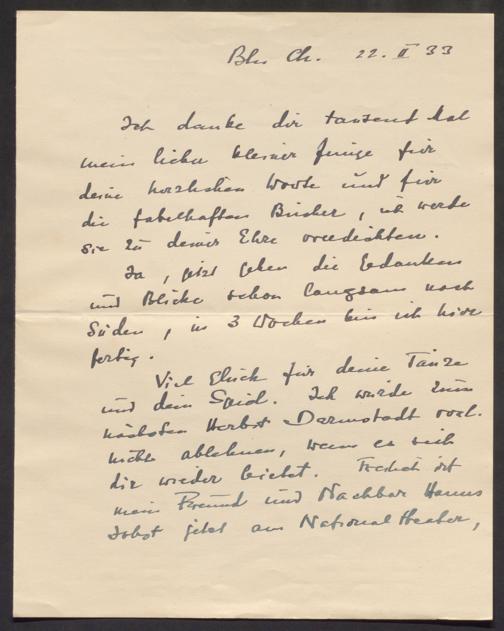 Bln Ch. 22. II 33
Ich danke dir tausend Mal
mein lieber kleiner Junge für
deine herzlichen Worte und für
die fabelhaften Bücher, ich werde
sie zu deiner Ehre
Ja, jetzt gehen die Gedanken
und Blicke schon langsam nach
Süden, in 3 Wochen bin ich hier
fertig.
Viel Glück für deine Tänze
und dein Spiel. Ich würde zum
nächsten Herbst Darmstadt
nicht ablehnen, wenn es sich
dir wieder bietet. Freilich ist
mein Freund und Nachbar Hanns
Johst jetzt am Nationaltheater,